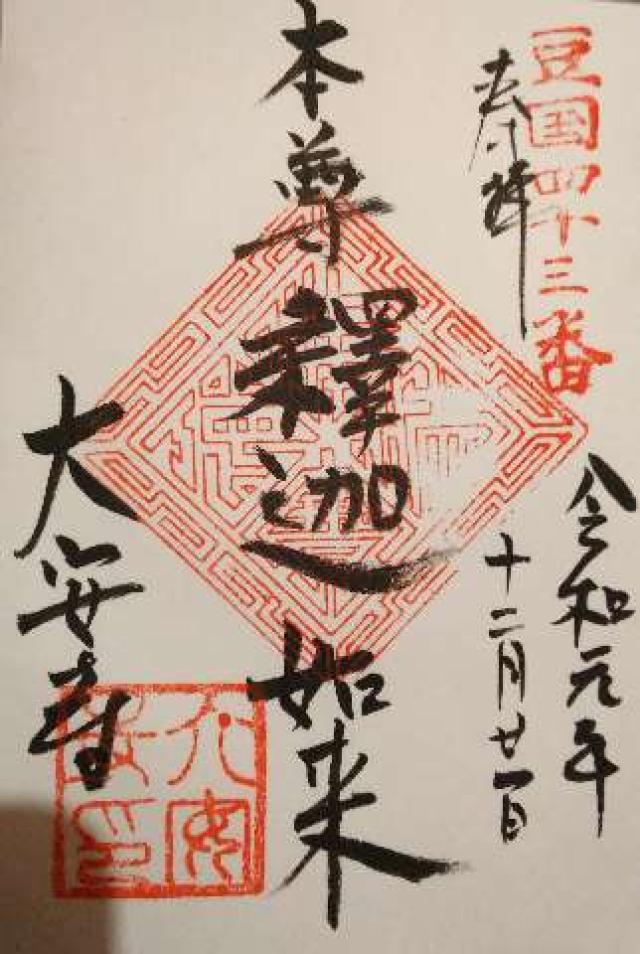 豆国四十三番
奉拝
令和元年
十二月廿一日
本尊釋迦如来
大安寺